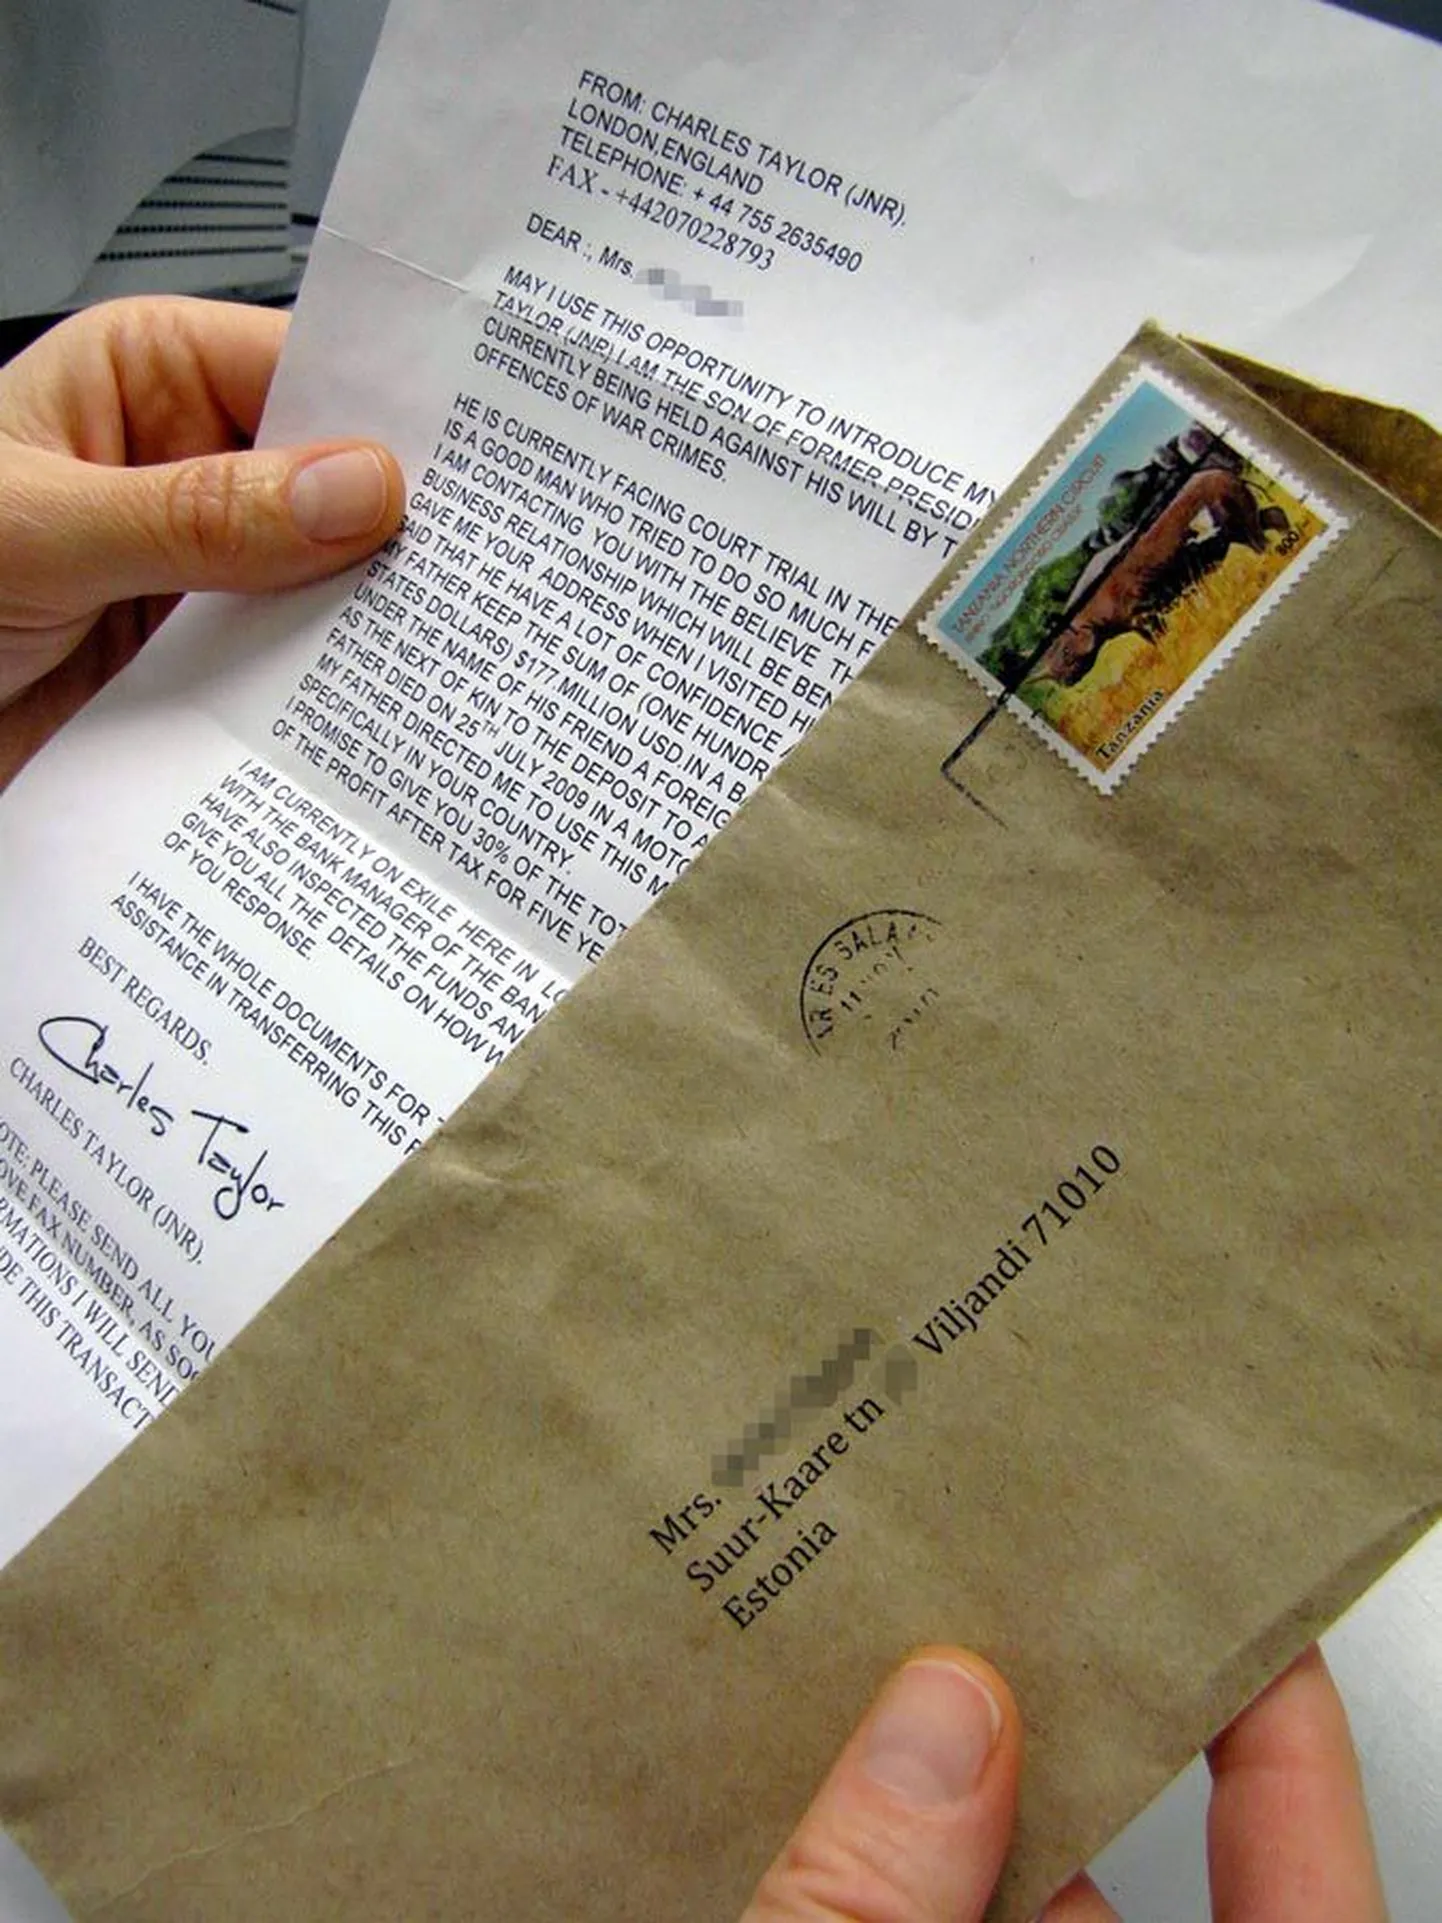 FROM: CHARLES TAYLOR (JNR).
LONDON,ENGLAND
TELEPHONE: + 44 755 2635490
FAX - +442070228793
DEAR :, Mrs.
MAY I USE THIS OPPORTUNITY TO INTRODUCE MY
TAYLOR (JNR) I AM THE SON OF FORMER PRESID
CURRENTLY BEING HELD AGAINST HIS WILL BY T
OFFENCES OF WAR CRIMES.
HE IS CURRENTLY FACING COURT TRIAL IN THE
IS A GOOD MAN WHO TRIED TO DO SO MUCH F
I AM CONTACTING YOU WITH THE BELIEVE TH
BUSINESS RELATIONSHIP WHICH WILL BE BEN
GAVE ME YOUR ADDRESS WHEN I VISITED H
SAID THAT HE HAVE A LOT OF CONFIDENCE
MY FATHER KEEP THE SUM OF (ONE HUNDR
STATES DOLLARS) $177.MILLION USD.IN A BA
UNDER THE NAME OF HIS FRIEND A FOREIG
AS THE NEXT OF KIN TO THE DEPOSIT TO A
FATHER DIED ON 25TH JULY 2009 IN A MOTO
MY FATHER DIRECTED ME TO USE THIS M
SPECIFICALLY IN YOUR COUNTRY.
I PROMISE TO GIVE YOU 30% OF THE TOT
OF THE PROFIT AFTER TAX FOR FIVE YE
I AM CURRENTLY ON EXILE HERE IN LO
WITH THE BANK MANAGER OF THE BAN
HAVE ALSO INSPECTED THE FUNDS AN
GIVE YOU ALL THE DETAILS ON HOW W
OF YOU RESPONSE.
I HAVE THE WHOLE DOCUMENTS FOR
ASSISTANCE IN TRANSFERRING THIS F
BEST REGARDS,
Charles Taylor
CHARLES TAYLOR (JNR).
OTE: PLEASE SEND ALL YOU
OVE FAX NUMBER, AS SOO
RMATIONS I WILL SEND
DE THIS TRANSACT
TANZANIA NORTHERN CIRCUIT
800/-
Tanzania
AR ES SALA
11 NOV
Mrs.
Suur-Kaare tn Viljandi 71010
Estonia